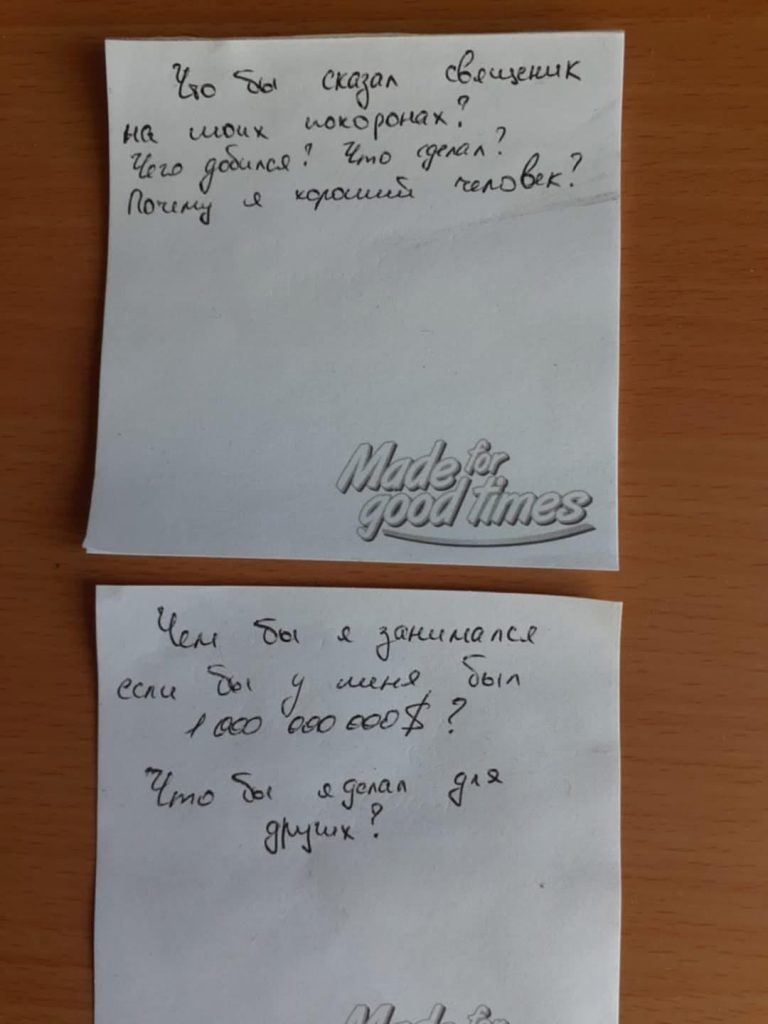 Что бы сказал священик
на моих похоронах?
Чего добился? Что сделал?
Почему я хороший человек?
Made for
good times
Чем бы я занимался
если бы у меня был
1 000 000 000$?
Что бы я делал для
других?
Made for